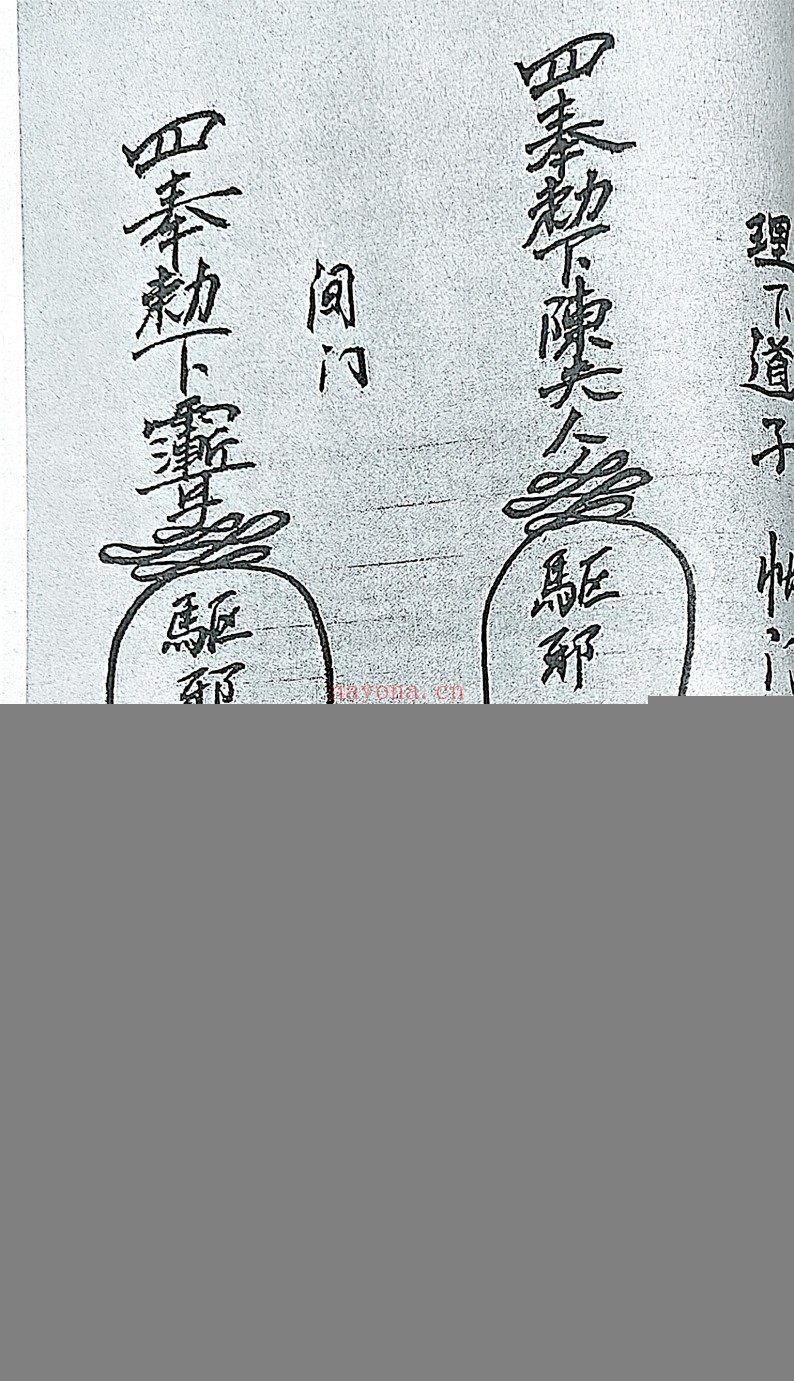 理下道子
四奉勅下陳夫人
驅邪
间门
四奉勅下
驅邪
nayona.cn